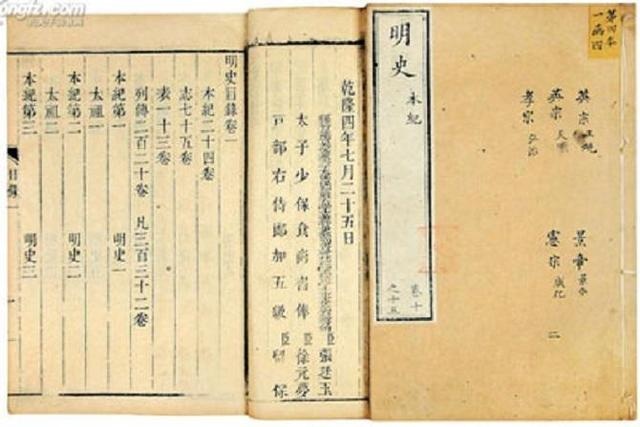 第四本
一函四
英宗正統 景帝景泰
英宗天順 憲宗成化
孝宗弘治 二
明史 本紀
卷十
之十五
乾隆四年七月二十五日
臣張廷玉
太子少保食尚書俸臣徐元夢
戶部右侍郎加五級臣留保
明史目錄卷一
本紀二十四卷
志七十五卷
表一十三卷
列傳二百二十卷 凡三百三十二卷
本紀第一 明史一
太祖一
本紀第二 明史二
太祖二
本紀第三 明史三
目錄一